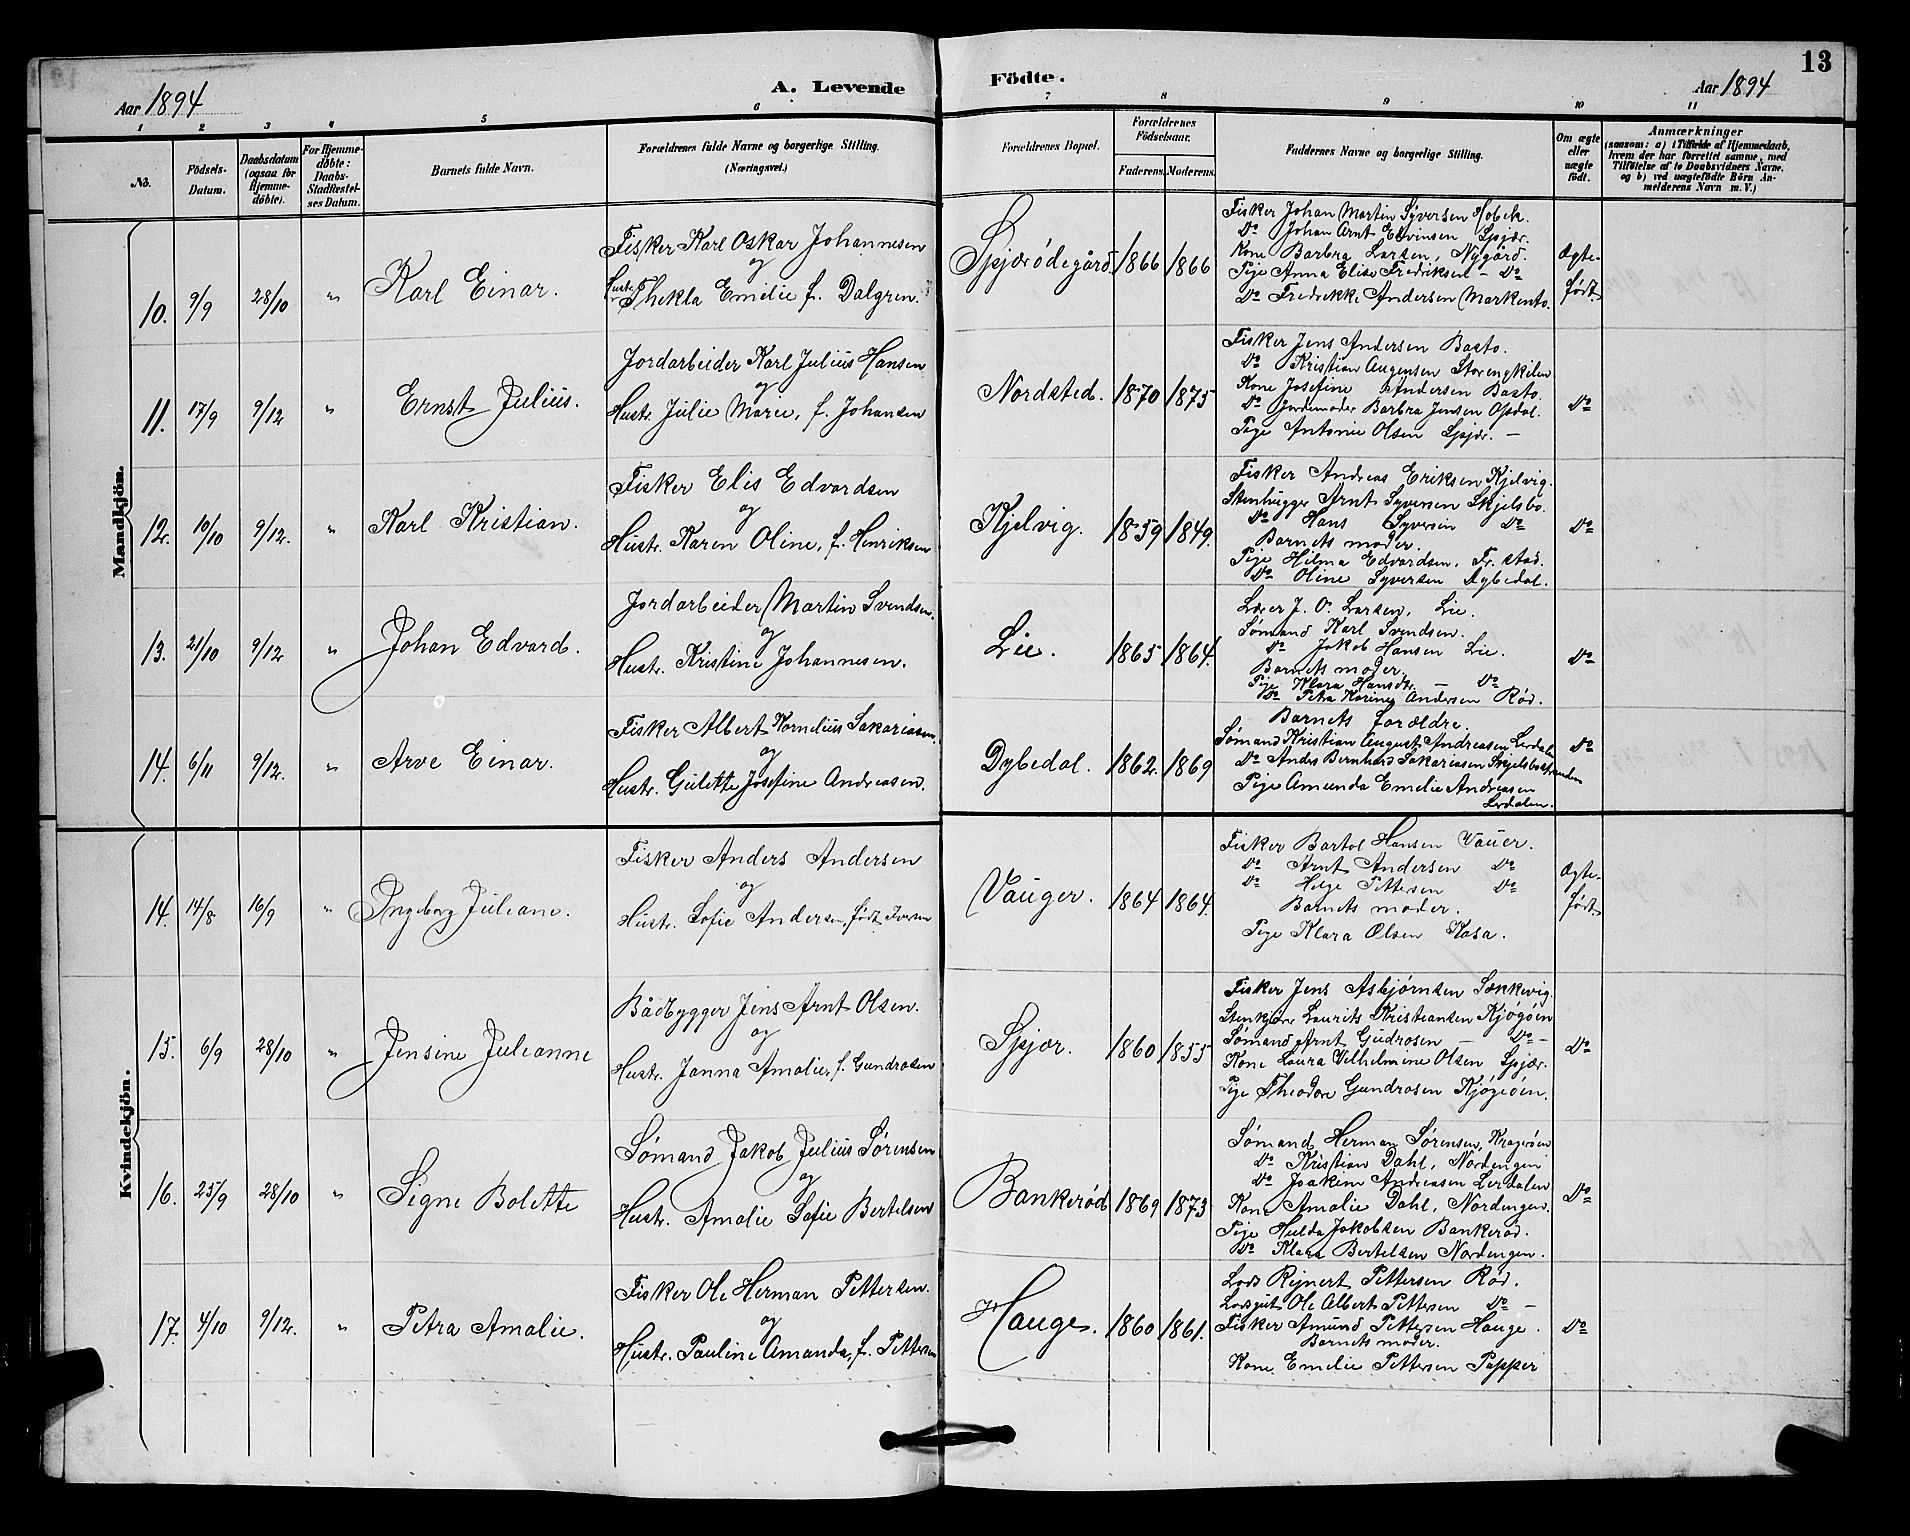 13
Aar 1894
A. Levende
Födte.
Aar 1894
1 2 3 4 5 6 7 8 9 10 11
No.
Födsels-
Datum.
Daabsdatum
(ogsaa for
Hjemme-
döbte).
For Hjemme-
döbte:
Daabs-
Stadfestel-
ses Datum.
Barnets fulde Navn.
Forældrenes fulde Navne og borgerlige Stilling.
(Næringsvei.)
Forældrenes Bopæl.
Forældrenes
Födselsaar.
Faderens. Moderens.
Faddernes Navne og borgerlige Stilling.
Om ægte
eller
uægte
födt.
Anmærkninger
(saasom: a) i Tilfælde af Hjemmedaab,
hvem der har forrettet samme, med
Tilföielse af to Daabsvidners Navne,
og b) ved uægtefödte Börn An-
melderens Navn m. V.)
Mandkjön.
10. 9/9 28/10 " Karl Einar.
Fisker Karl Oskar Johannesen
og
Hustr. Thekla Emilie f. Dalgren.
Spjærødegård 1866 1866
Fisker Johan Martin Syversen Hobek.
Do Johan Arnt Edvinsen Spjær.
Kone Barbra Larsen, Nygård.
Pige Anna Elise Fredriksen - Do
Do Fredrekke Andersen Markento.
Ægte-
født
11. 17/9 9/12 " Ernst Julius.
Jordarbeider Karl Julius Hansen
og
Hustr. Julie Marie, f. Johansen
Nordsted. 1870 1875
Fisker Jens Andersen Basto.
Do Kristian Augensen Storengkilen
Kone Josefine Andersen Basto.
Do Jordemoder Barbra Jensen Opdal.
Pige Antonie Olsen Spjær. -
Do
12. 10/10 9/12. " Karl Kristian.
Fisker Elis Edvardsen
og
Hustr. Karen Oline, f. Henriksen
Kjølvig. 1859 1849.
Fisker Andreas Eriksen Kjelvig.
Stenhugger Arnt Syversen Skjelsbo.
Do Hans Syversen Do
Barnets moder.
Pige Hilma Edvardsen, Fr. stad.
Do Oline Syversen Dybedal.
Do
13. 21/10 9/12 " Johan Edvard.
Jordarbeider Martin Svendsen.
og
Hustr. Kristine Johannesen.
Lie. 1865 1864.
Lærer J. O. Larsen, Lie.
Sømand Karl Svendsen.
Do Jakob Hansen Lie.
Barnets moder.
Pige Klara Hansdtr. - Do
Do Petra Karine Andersen Rød.
Do
14. 6/11 9/12. " Arve Einar.
Fisker Albert Kornelius Sakariasen.
og
Hustr. Gulette Josefine Andreasen.
Dybedal. 1862. 1869
Barnets forældre.
Sømand Kristian August Andreasen Lerdalen
Do Anders Bernhard Sakariasen Skjelsbostranden
Pige Amunda Emelie Andreasen
Lerdalen.
Do
Kvindekjön.
14. 14/8 16/9 " Ingeborg Juliane.
Fisker Anders Andersen
og
Hustr. Sofie Andersen, født Iversen
Vauger. 1864 1864.
Fisker Bartol Hansen Vauer.
Do Arnt Andersen Do
Do Helge Pettersen Do
Barnets moder.
Pige Klara Olsen Kasa.
Ægte-
født
15. 6/9 28/10 " Jensine Julianne
Bådbygger Jens Arnt Olsen.
og
Hustr. Janna Amalie, f. Gundrosen
Spjær. 1860 1855
Fisker Jens Asbjørnsen Sækkevig.
Laurits Kristiansen Kjøgöen
Sømand Arnt Gudrosen - Do -
Kone Laura Vilhelmine Olsen Spjær.
Pige Theodore Gundrosen Kjøgöen.
Do
16. 25/9 28/10 " Signe Bolette
Sømand Jakob Julius Sørensen
og
Hustr. Amalie Sofie Bertelsen
Bankerød 1869 1873
Sømand Herman Sørensen, Kragerøen
Do Kristian Dahl, Nordengen
Do Joakim Andreasen Lerdalen
Kone Amalie Dahl, Nordengen.
Pige Hulda Jakobsen Bankerød.
Do Klara Bertelsen Nordengen.
Do
17. 4/10 9/12. " Petra Amalie.
Fisker Ole Herman Pettersen.
og
Hustr. Pauline Amanda, f. Pettersen
Hauge. 1860 1861.
Lods Rejnert Pettersen Rød.
Lodsgut Ole Albert Pettersen Do -
Fisker Amund Pettersen Hauge.
Barnets moder.
Kone Emelie Pettersen Papper
Do